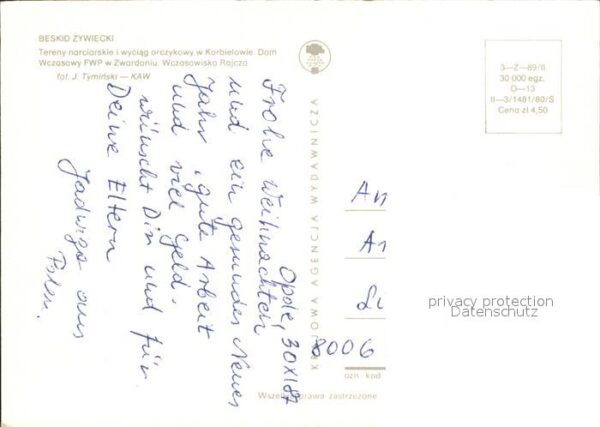 BESKID ŻYWIECKI
Tereny narciarskie i wyciąg orczykowy w Korbielowie. Dom
Wczasowy FWP w Zwardoniu. Wczasowisko Rajcza
fot. J. Tymiński — KAW
3—Z—89/II
30 000 egz.
O—13
II—3/1481/80/S
Cena zł 4,50
KRAJOWA AGENCJA WYDAWNICZA
Opole, 30XI87
Frohe Weihnachten
und ein gesundes Neues
Jahr, gute Arbeit
und viel Geld,
wünscht Dir und für
Deine Eltern
Jadwiga aus
Polen.
8006
privacy protection
Datenschutz
kod
Wsze prawa zastrzeżone